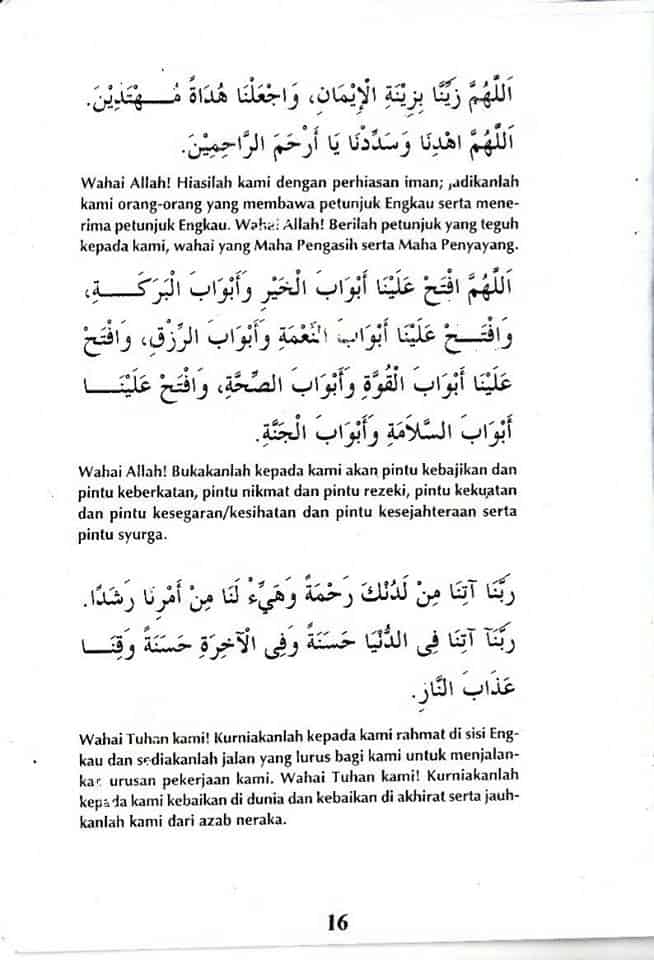 اَللَّهُمَّ زَيِّنَّا بِزِيْنَةِ الْإِيْمَانِ، وَاجْعَلْنَا هُدَاةً مُـهْتَدِيْنَ.
اَللَّهُمَّ اهْدِنَا وَسَدِّدْنَا يَا أَرْحَمَ الرَّاحِمِيْنَ.
Wahai Allah! Hiasilah kami dengan perhiasan iman; jadikanlah
kami orang-orang yang membawa petunjuk Engkau serta mene-
rima petunjuk Engkau. Wahai Allah! Berilah petunjuk yang teguh
kepada kami, wahai yang Maha Pengasih serta Maha Penyayang.
اَللَّهُمَّ افْتَحْ عَلَيْنَا أَبْوَابَ الْخَيْرِ وَأَبْوَابَ الْبَرَكَـةِ،
وَافْتَـحْ عَلَيْنَا أَبْوَابَ النِّعْمَةِ وَأَبْوَابَ الرِّزْقِ، وَافْتَحْ
عَلَيْنَا أَبْوَابَ الْقُوَّةِ وَأَبْوَابَ الصِّحَّةِ، وَافْتَحْ عَلَيْنَـا
أَبْوَابَ السَّلَامَةِ وَأَبْوَابَ الْجَنَّةِ.
Wahai Allah! Bukakanlah kepada kami akan pintu kebajikan dan
pintu keberkatan, pintu nikmat dan pintu rezeki, pintu kekuatan
dan pintu kesegaran/kesihatan dan pintu kesejahteraan serta
pintu syurga.
رَبَّنَا آتِنَا مِنْ لَدُنْكَ رَحْمَةً وَهَيِّءْ لَنَا مِنْ أَمْرِنَا رَشَدًا.
رَبَّنَآ آتِنَا فِى الدُّنْيَا حَسَنَةً وَفِى الْآخِرَةِ حَسَنَةً وَقِنَـا
عَذَابَ النَّارِ.
Wahai Tuhan kami! Kurniakanlah kepada kami rahmat di sisi Eng-
kau dan sediakanlah jalan yang lurus bagi kami untuk menjalan-
kan urusan pekerjaan kami. Wahai Tuhan kami! Kurniakanlah
kepada kami kebaikan di dunia dan kebaikan di akhirat serta jauh-
kanlah kami dari azab neraka.
16